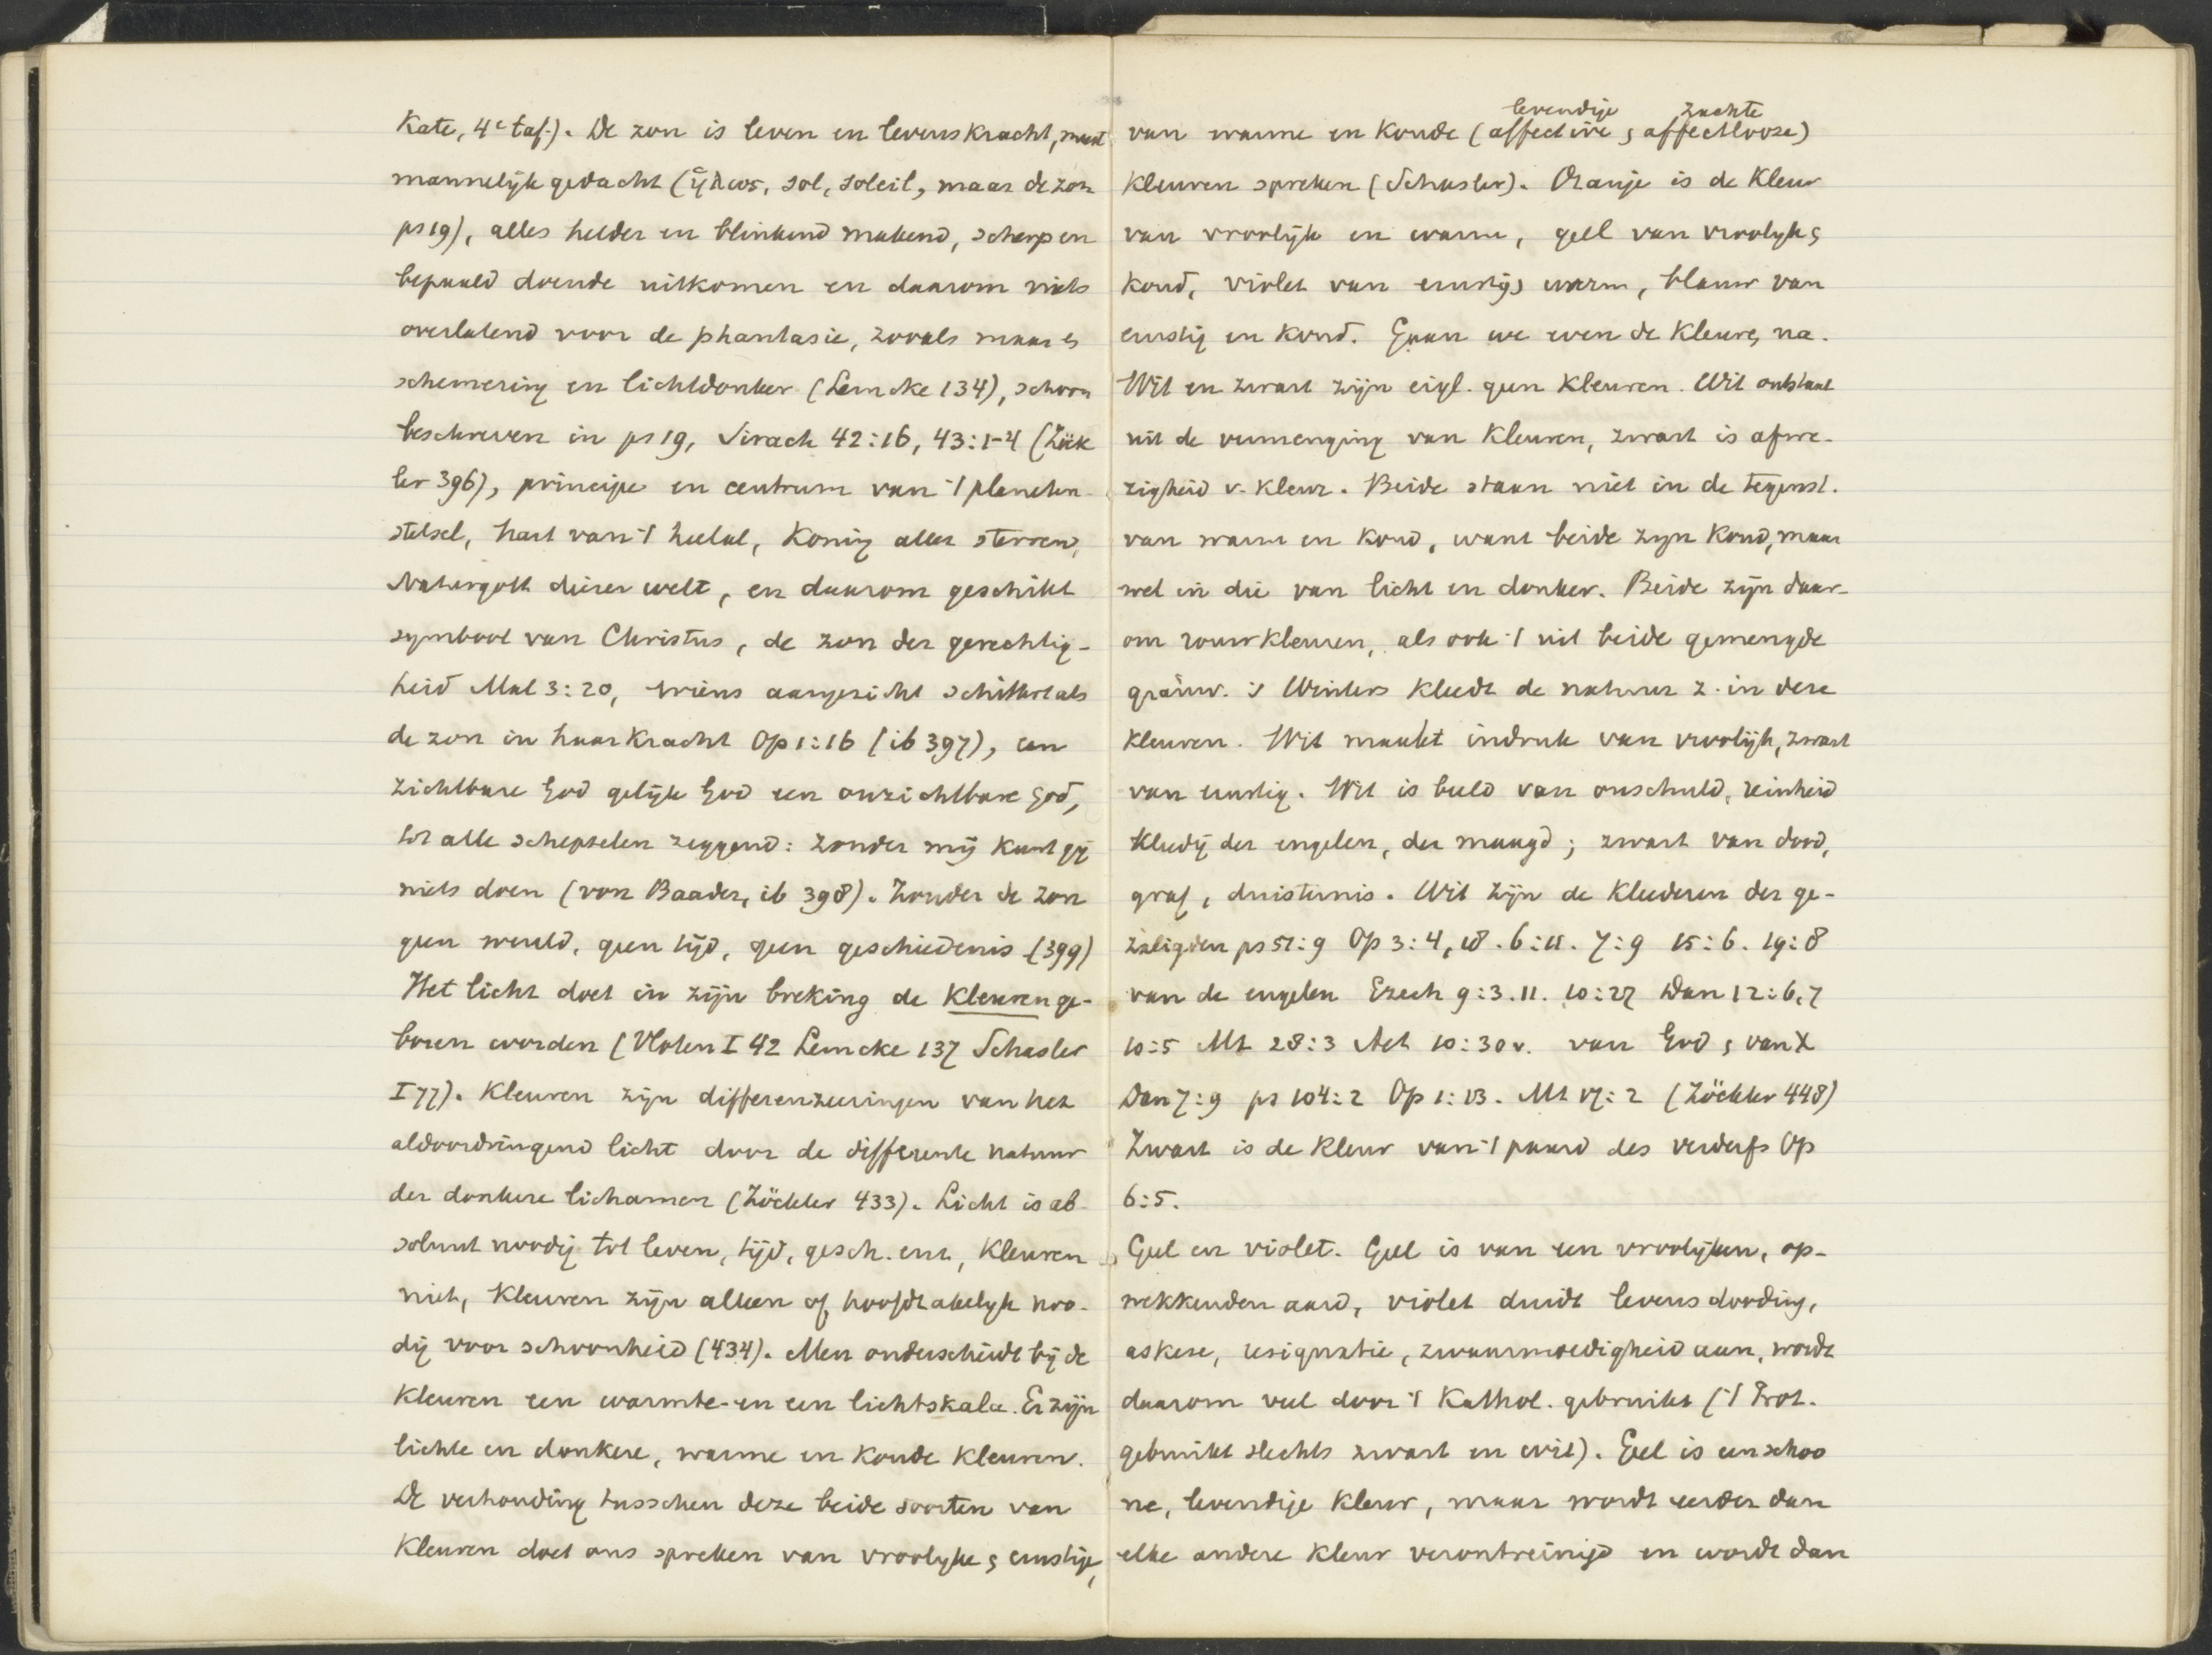 Kate, 4e taf.). De zon is leven en levenskracht, meest
mannelijk gedacht (ἥλιος, sol, soleil, maar de zon
ps 19), alles helder en blinkend makend, scherp en
bepaald doende uitkomen en daarom niets
overlatend voor de phantasie, zooals maar es
schemering en lichtdonker (Lemcke 134), schoon
beschreven in ps 19, Sirach 42:16, 43:1-4 (Zöck
ler 396), principe en centrum van 't planeten-
stelsel, hart van 't heelal, Koning aller sterren,
Naturgott dieser welt, en daarom geschikt
symbool van Christus, de zon der gerechtig-
heid Mal 3:20, wiens aangezicht schittert als
de zon in haar kracht Op 1:16 (ib 397), een
zichtbare God gelijk God een onzichtbare God,
tot alle schepselen zeggend: zonder mij kunt gij
niets doen (von Baader, ib 398). Zonder de zon
geen wereld, geen tijd, geen geschiedenis (399)
Het licht doet in zijn breking de Kleuren ge-
boren worden (Vloten I 42 Lemcke 137 Schasler
I 77). Kleuren zijn differenzieeringen van het
aldoordringend licht door de differente natuur
der donkere lichamen (Zöckler 433). Licht is ab-
soluut noodig tot leven, tijd, gesch. enz, Kleuren
niet, Kleuren zijn alleen of hoofdzakelijk noo-
dig voor schoonheid (434). Men onderscheidt bij de
Kleuren een warmte- en een lichtskala. Er zijn
lichte en donkere, warme en koude Kleuren.
De verhouding tusschen deze beide soorten van
Kleuren doet ons spreken van vroolyke en ernstige,
levendige zachte
van warme en koude (affective en affectlooze)
Kleuren spreken (Schasler). Oranje is de Kleur
van vroolijk en warm, geel van vroolyk en
koud, violet van ernstig en warm, blauw van
ernstig en koud. Gaan we even de Kleuren na.
Wit en zwart zijn eigl. geen Kleuren. Wit ontstaat
uit de vermenging van Kleuren, zwart is afwe-
zigheid v. Kleur. Beide staan niet in de tegenst.
van warm en koud, want beide zyn koud, maar
wel in die van licht en donker. Beide zijn daar-
om rouwkleuren, als ook 't uit beide gemengde
grauw. 's Winters kleedt de natuur z. in deze
Kleuren. Wit maakt indruk van vroolijk, zwart
van ernstig. Wit is beeld van onschuld, reinheid
Kledij der engelen, der maagd; zwart van dood,
graf, duisternis. Wit zijn de Kleederen der ge-
zaligden ps 51:9 Op 3:4,18. 6:11. 7:9 15:6. 19:8
van de engelen Ezech 9:3.11. 10:27 Dan 12:6,7
10:5 Mt 28:3 Act 10:30v. van God en van X
Dan 7:9 ps 104:2 Op 1:13. Mt 17:2 (Zöckler 448)
Zwart is de Kleur van 't paard des verderfs Op
6:5.
Geel en violet. Geel is van een vroolijken, op-
wekkenden aard, violet duidt levensdooding,
askese, resignatie, zwaarmoedigheid aan, wordt
daarom veel door 't Kathol. gebruikt ('t Prot.
gebruikt slechts zwart en wit). Geel is een schoo
ne, levendige Kleur, maar wordt eerder dan
elke andere Kleur verontreinigd en wordt dan